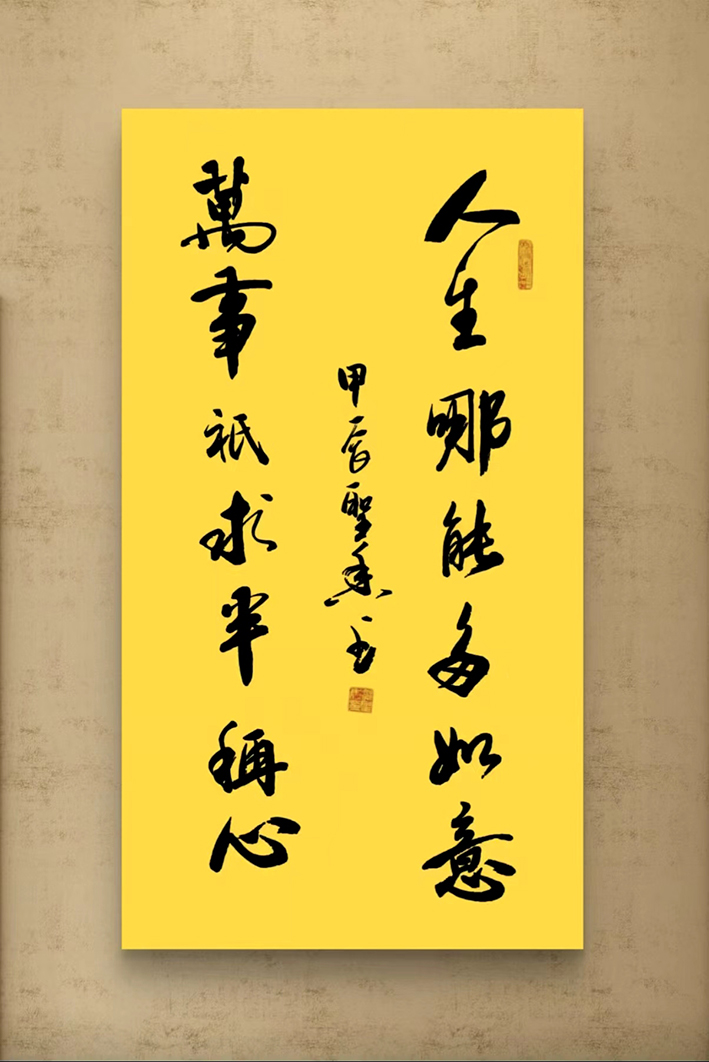 人生哪能多如意
萬事祇求半稱心
甲辰聖